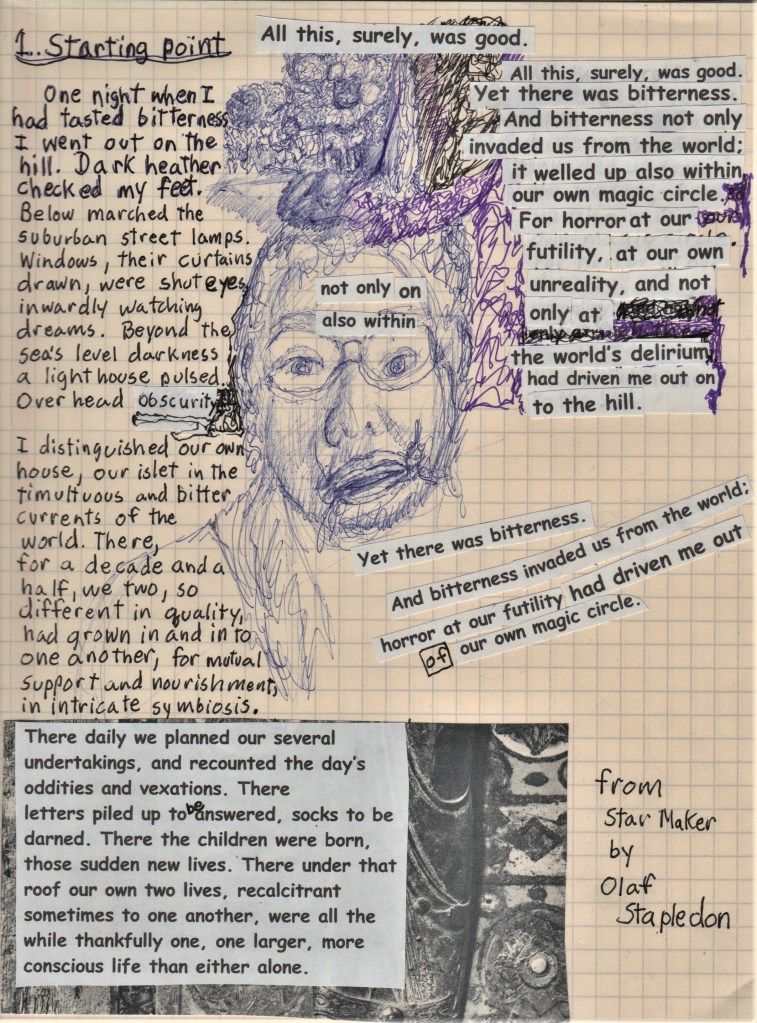 1. Starting point
One night when I
had tasted bitterness
I went out on the
hill. Dark heather
checked my feet.
Below marched the
suburban street lamps.
Windows, their curtains
drawn, were shut eyes,
inwardly watching
dreams. Beyond the
sea's level darkness
a lighthouse pulsed.
Overhead obscurity
I distinguished our own
house, our islet in the
timultuous and bitter
currents of the
world. There,
for a decade and a
half, we two, so
different in quality,
had grown in and in to
one another, for mutual
support and nourishment,
in intricate symbiosis.
All this, surely, was good.
All this, surely, was good.
Yet there was bitterness.
And bitterness not only
invaded us from the world;
it welled up also within
our own magic circle.
For horror at our
futility, at our own
unreality, and not
only at
the world's delirium,
had driven me out on
to the hill.
not only on
also within
Yet there was bitterness.
And bitterness invaded us from the world;
horror at our futility had driven me out
of our own magic circle.
There daily we planned our several
undertakings, and recounted the day's
oddities and vexations. There
letters piled up to be answered, socks to be
darned. There the children were born,
those sudden new lives. There under that
roof our own two lives, recalcitrant
sometimes to one another, were all the
while thankfully one, one larger, more
conscious life than either alone.
from
Star Maker
by
Olaf
Stapledon